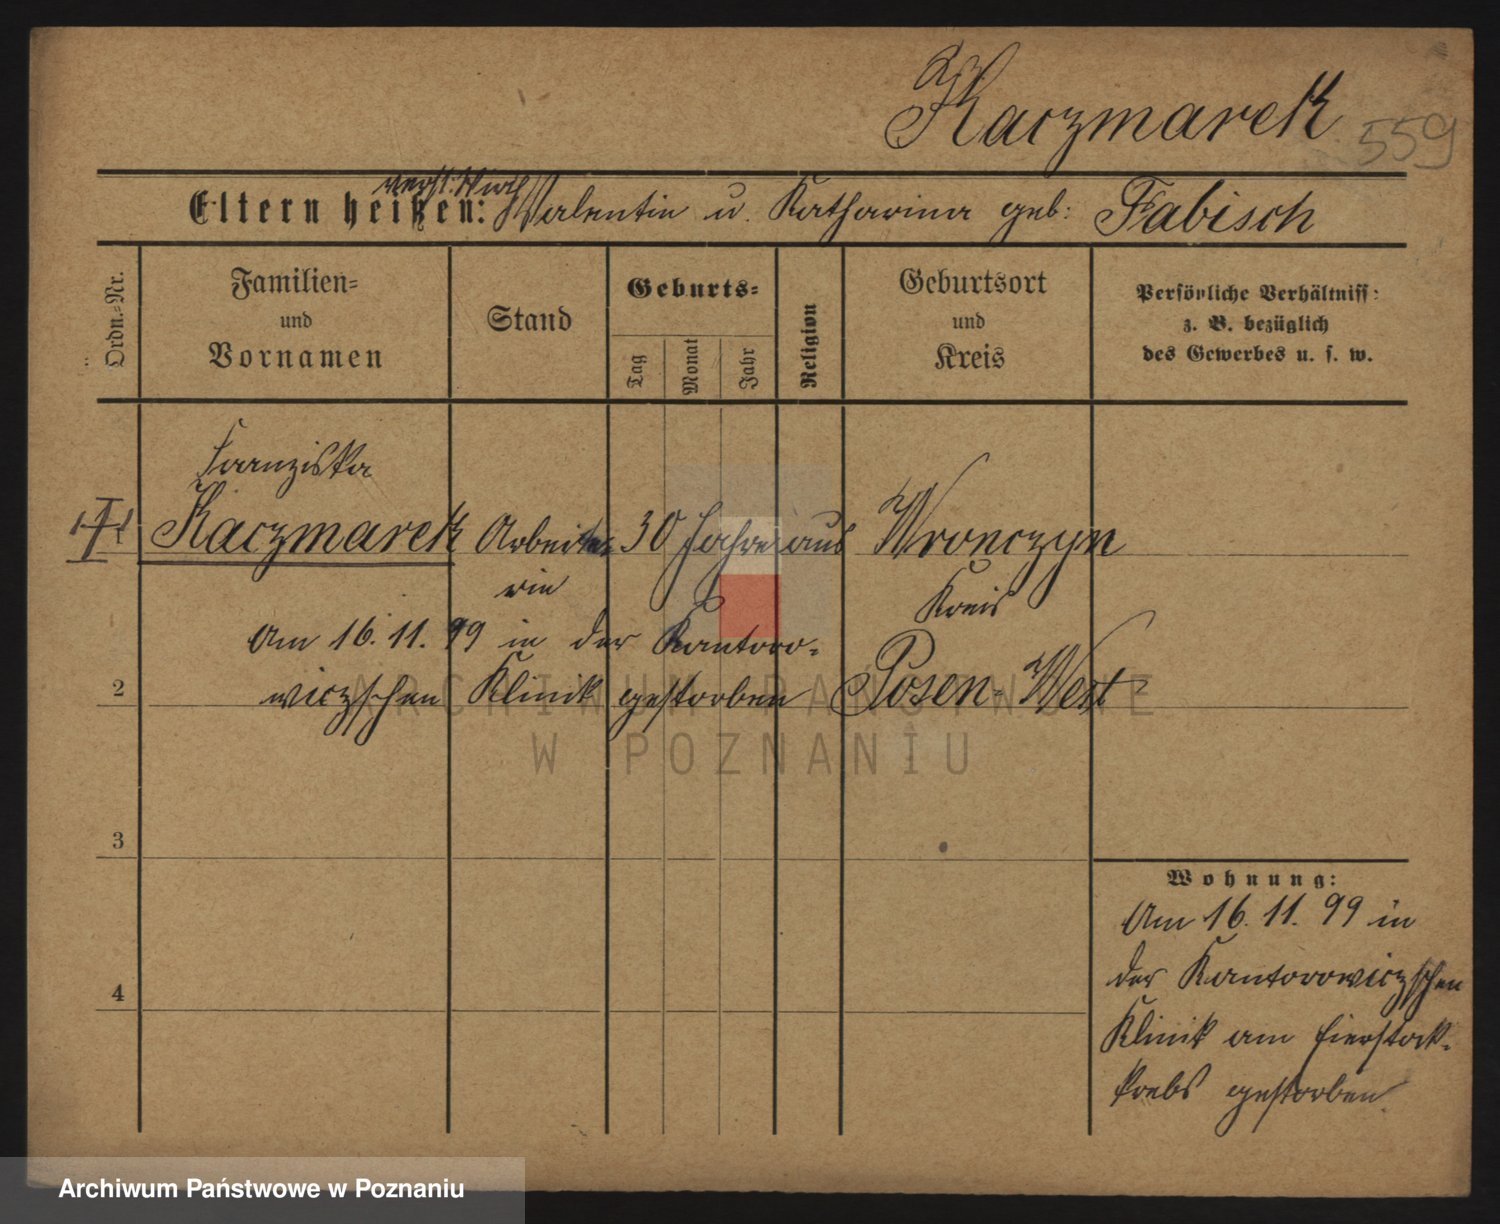 Kaczmarek 559
verst. Wirth
Eltern heißen: Valentin u. Katharina geb: Fabisch
Ordn.-Nr.
Familien-
und
Vornamen
Stand
Geburts-
Tag
Monat
Jahr
Religion
Geburtsort
und
Kreis
Persönliche Verhältniss:
z. B. bezüglich
des Gewerbes u. s. w.
Franziska
Kaczmarek Arbeite- 30 Jahre aus Wronczyn
rin Kreis
Am 16. 11. 99 in der Kantoro-
2 wiczschen Klinik gestorben Posen-West
3
4
Wohnung:
Am 16. 11. 99 in
der Kantorowiczschen
Klinik am Eierstock-
krebs gestorben.
ARCHIWUM PAŃSTWOWE
W POZNANIU
Archiwum Państwowe w Poznaniu